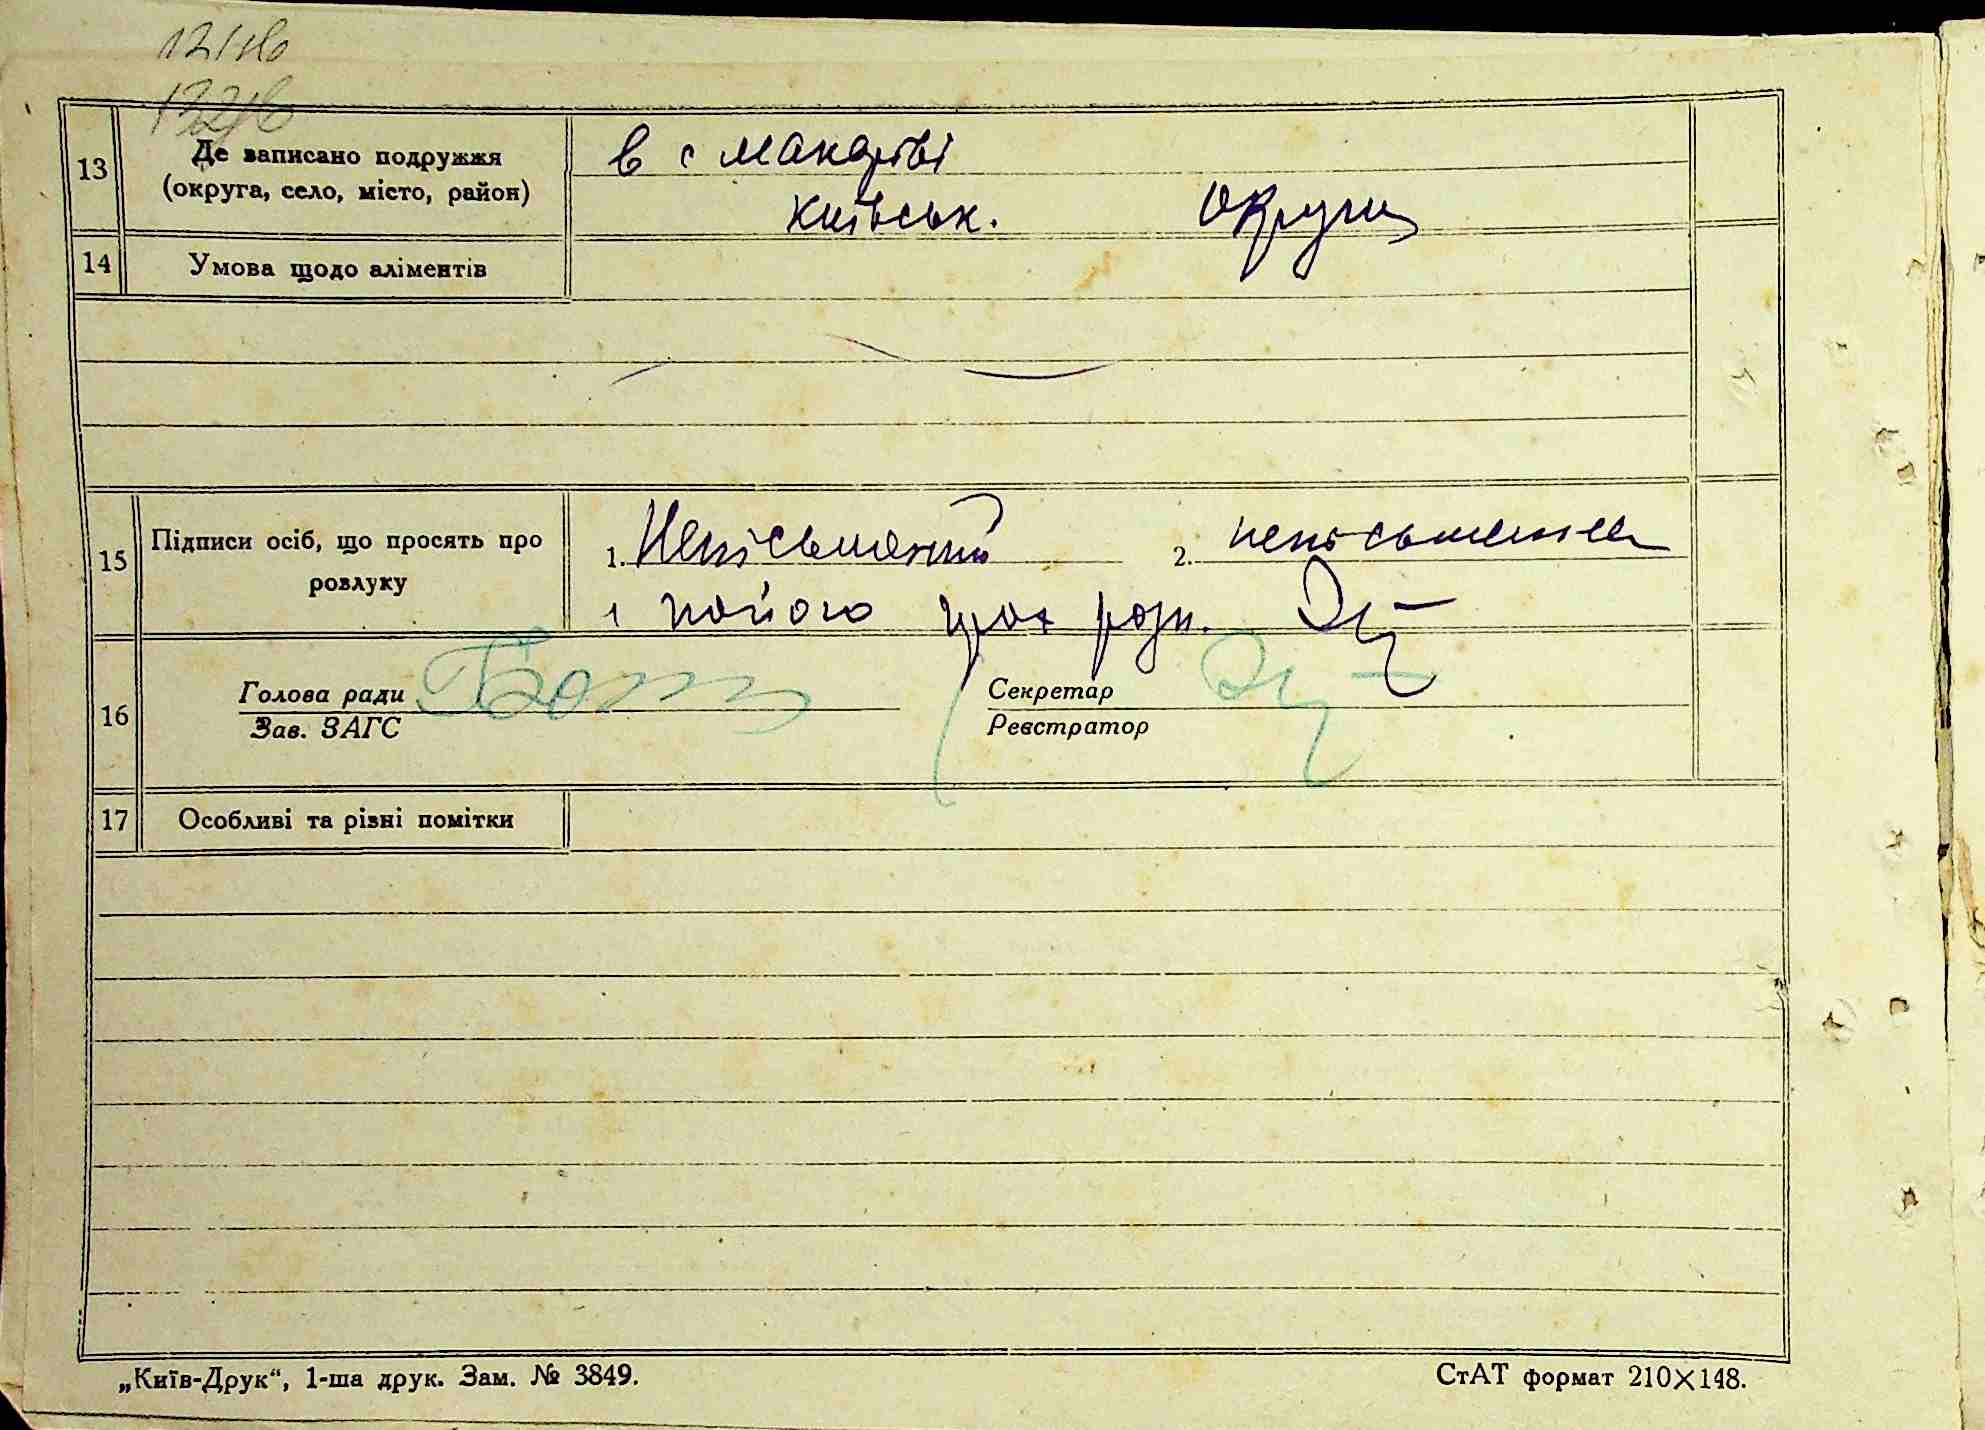 13 Де записано подружжя
(округа, село, місто, район)
в с Макарові
київськ. округи
14 Умова щодо аліментів
15 Підписи осіб, що просять про
розлуку
1. Неписьменний 2. неписьменна
і
16 Голова ради
Зав. ЗАГС
Секретар
Реєстратор
17 Особливі та різні помітки
„Київ-Друк“, 1-ша друк. Зам. № 3849.
СтАТ формат 210×148.